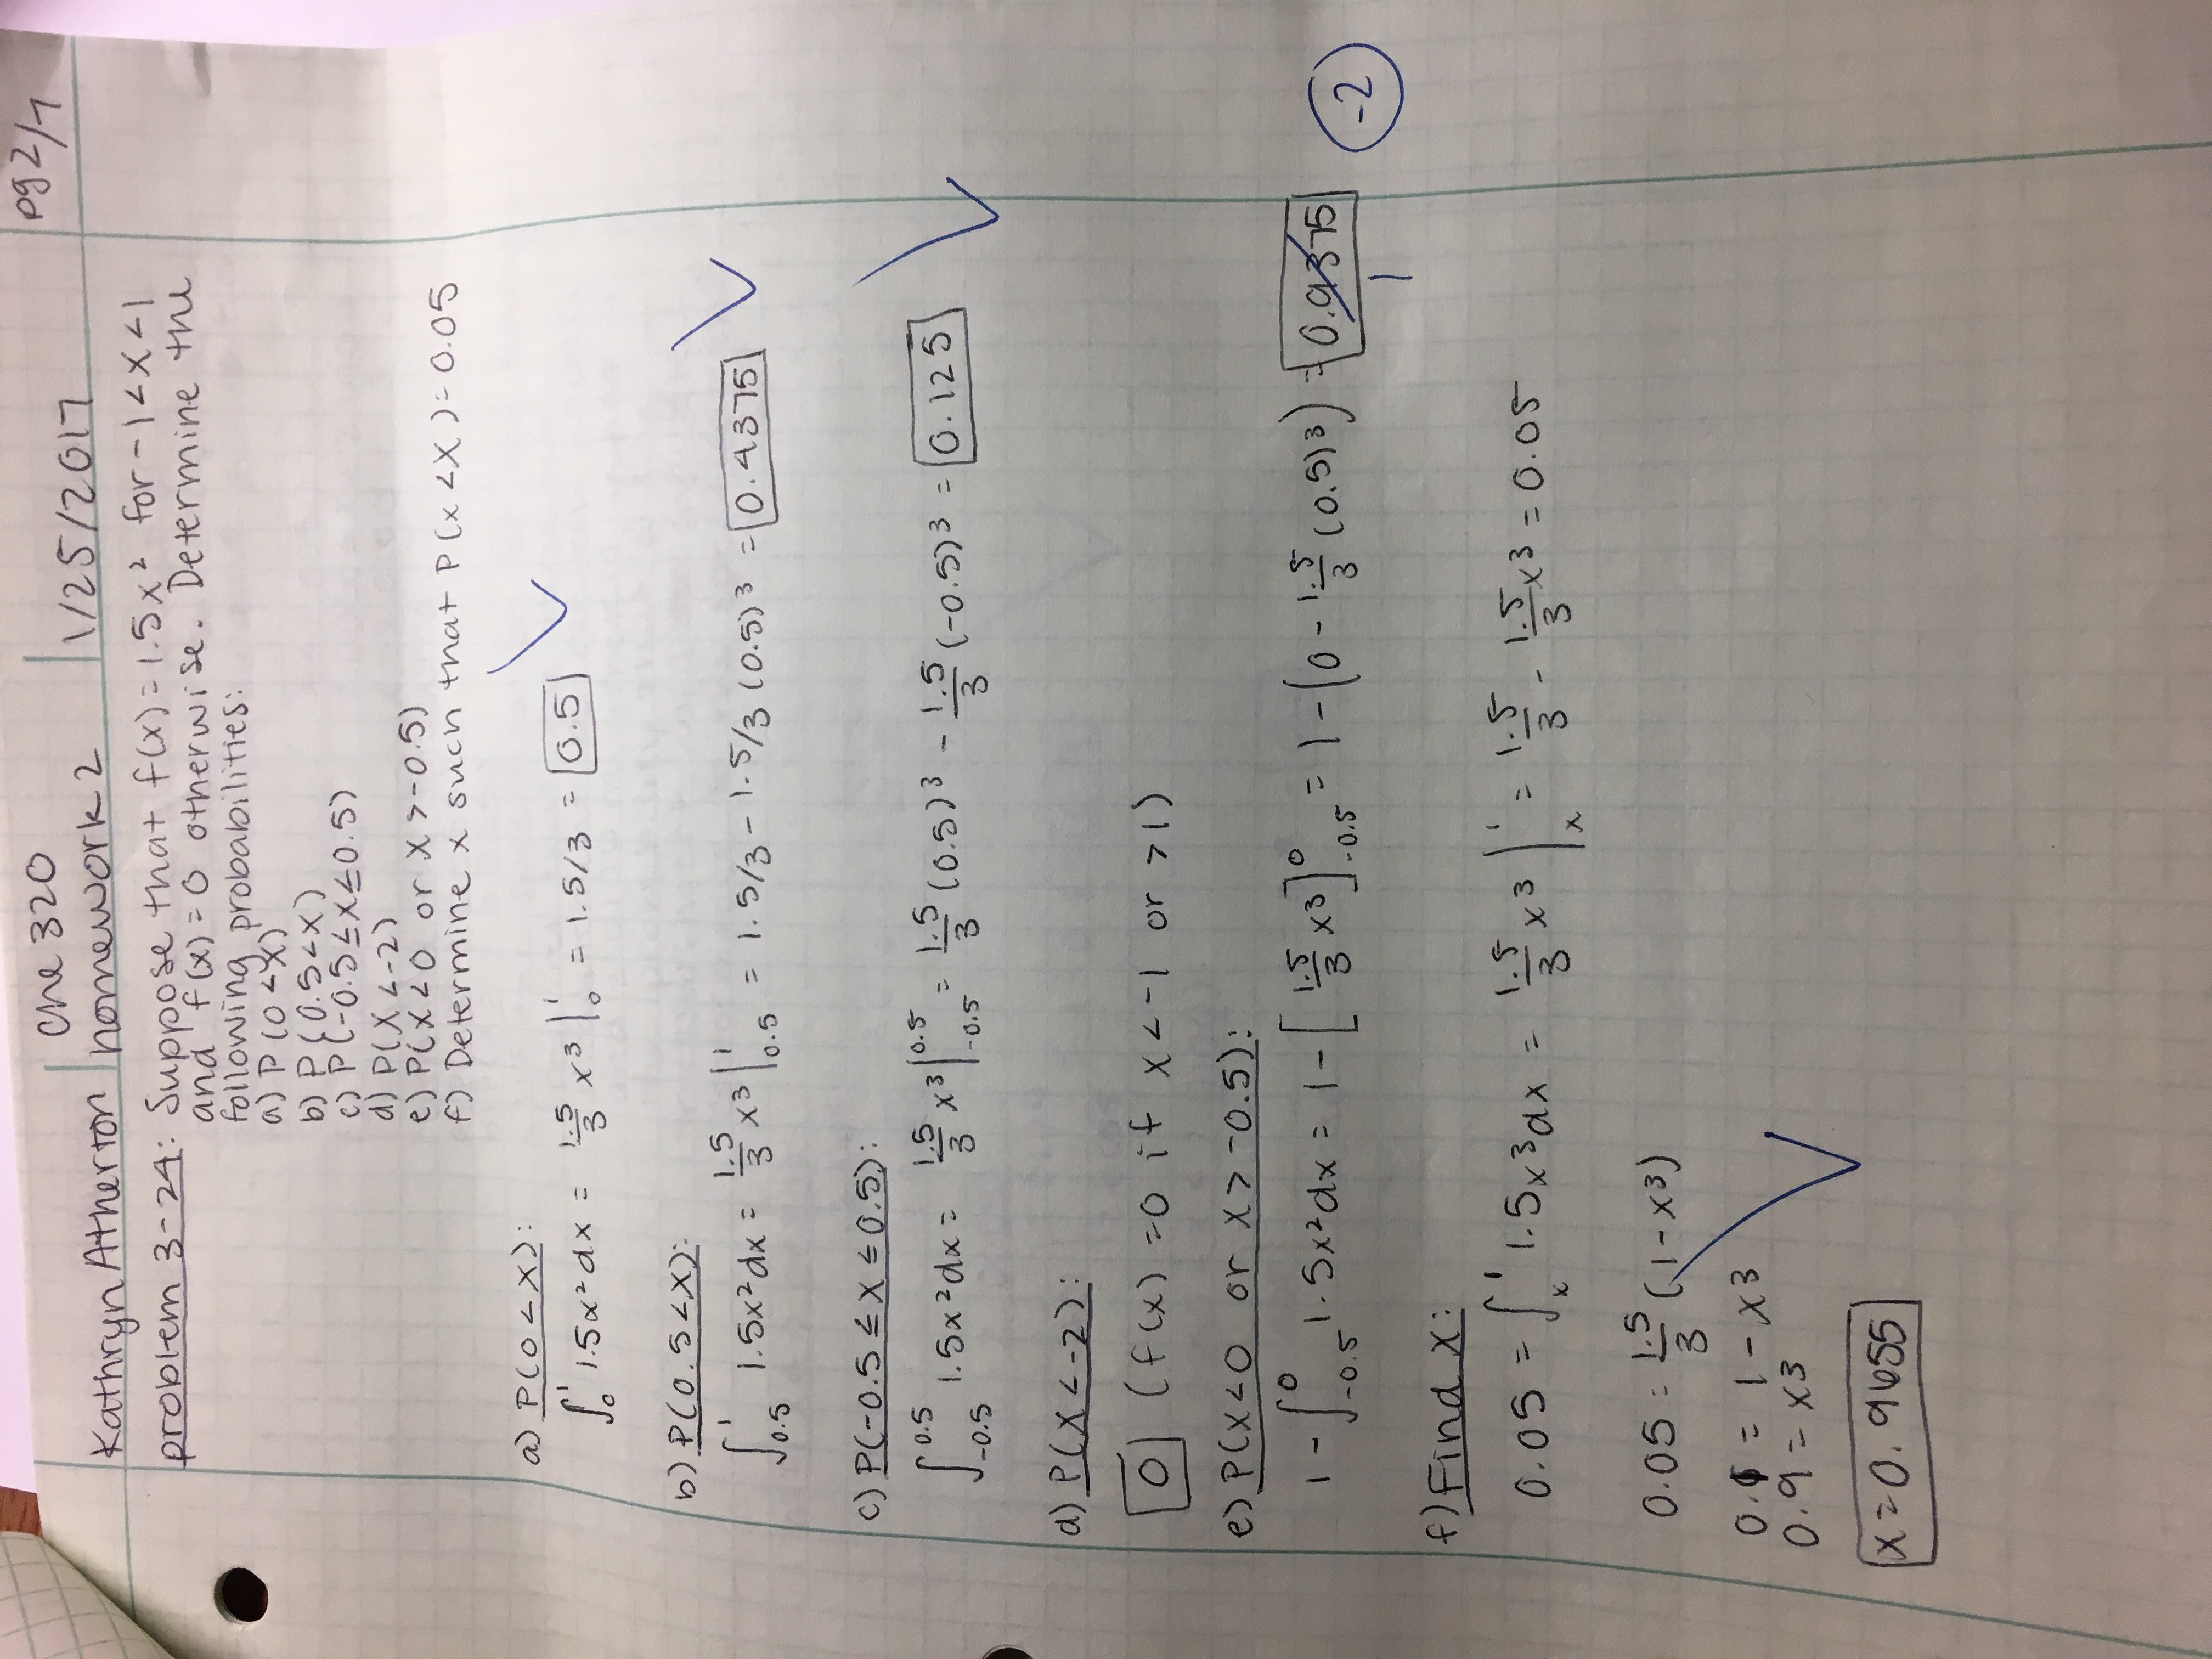 Kathryn Atherton | Che 320 homework 2 | 1/25/2017 pg 2/7
problem 3-24: Suppose that f(x) = 1.5x² for -1 < x < 1
and f(x) = 0 otherwise. Determine the
following probabilities:
a) P(0 < X)
b) P(0.5 < X)
c) P(-0.5 ≤ X ≤ 0.5)
d) P(X < -2)
e) P(X < 0 or X > -0.5)
f) Determine x such that P(x < X) = 0.05
a) P(0 < X):
∫₀¹ 1.5x² dx = 1.5/3 x³ |₀¹ = 1.5/3 = 0.5
b) P(0.5 < X):
∫_0.5^1 1.5x² dx = 1.5/3 x³ |_0.5^1 = 1.5/3 - 1.5/3 (0.5)³ = 0.4375
c) P(-0.5 ≤ X ≤ 0.5):
∫_-0.5^0.5 1.5x² dx = 1.5/3 x³ |_-0.5^0.5 = 1.5/3 (0.5)³ - 1.5/3 (-0.5)³ = 0.125
d) P(X < -2):
0 (f(x) = 0 if x < -1 or > 1)
e) P(X < 0 or X > -0.5):
1 - ∫_-0.5^0 1.5x² dx = 1 - [1.5/3 x³]_-0.5^0 = 1 - (0 - 1.5/3 (0.5)³) = 0.9375
1
-2
f) Find x:
0.05 = ∫_x^1 1.5x³ dx = 1.5/3 x³ |_x^1 = 1.5/3 - 1.5/3 x³ = 0.05
0.05 = 1.5/3 (1 - x³)
0.1 = 1 - x³
0.9 = x³
x = 0.9655